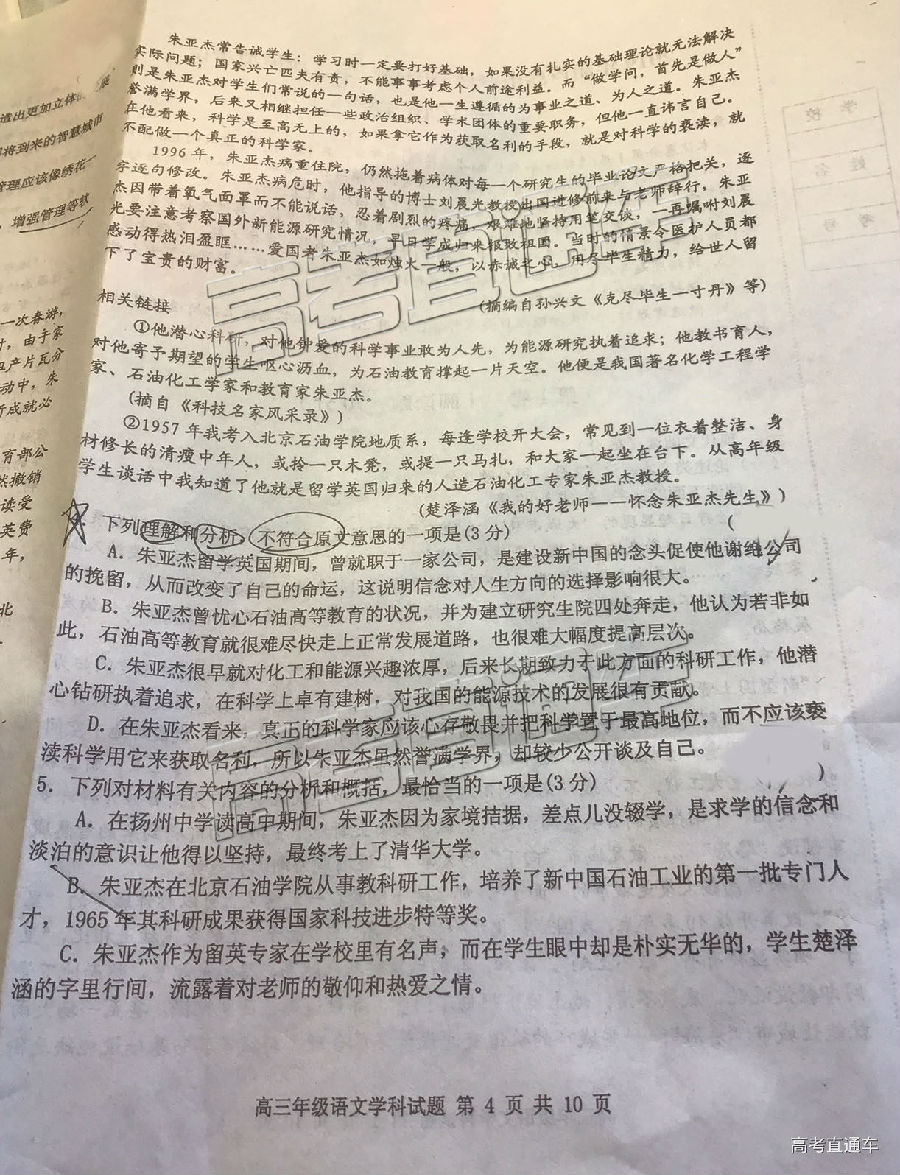 朱亚杰常告诫学生：学习时一定要打好基础，如果没有扎实的基础理论就无法解决
实际问题；国家兴亡匹夫有责，不能事事考虑个人前途利益。而“做学问，首先是做人”
则是朱亚杰对学生们常说的一句话，也是他一生遵循的为事业之道、为人之道。朱亚杰
誉满学界，后来又相继担任一些政治组织、学术团体的重要职务，但他一直讳言自己。
在他看来，科学是至高无上的，如果拿它作为获取名利的手段，就是对科学的亵渎，就
不配做一个真正的科学家。
1996年，朱亚杰病重住院，仍然拖着病体对每一个研究生的毕业论文严格把关，逐
字逐句修改。朱亚杰病危时，他指导的博士刘晨光教授出国进修前来与老师辞行，朱亚
杰因带着氧气面罩而不能说话，忍着剧烈的疼痛，艰难地坚持用笔交谈，一再嘱咐刘晨
光要注意考察国外新能源研究情况，早日学成归来报效祖国。当时的情景令医护人员都
感动得热泪盈眶……爱国者朱亚杰如烛火一般，以赤诚之心，用尽毕生精力，给世人留
下了宝贵的财富。
(摘编自孙兴文《克尽毕生一寸丹》等)
相关链接
①他潜心科研，对他钟爱的科学事业敢为人先，为能源研究执着追求；他教书育人，
对他寄予期望的学生呕心沥血，为石油教育撑起一片天空。他便是我国著名化学工程学
家、石油化工学家和教育家朱亚杰。
(摘自《科技名家风采录》)
②1957年我考入北京石油学院地质系，每逢学校开大会，常见到一位衣着整洁、身
材修长的清瘦中年人，或拎一只木凳，或提一只马扎，和大家一起坐在台下。从高年级
学生谈话中我知道了他就是留学英国归来的人造石油化工专家朱亚杰教授。
(楚泽涵《我的好老师——怀念朱亚杰先生》)
下列理解和分析，不符合原文意思的一项是(3分) (
A．朱亚杰留学英国期间，曾就职于一家公司，是建设新中国的念头促使他谢绝公司
的挽留，从而改变了自己的命运，这说明信念对人生方向的选择影响很大。
B．朱亚杰曾忧心石油高等教育的状况，并为建立研究生院四处奔走，他认为若非如
此，石油高等教育就很难尽快走上正常发展道路，也很难大幅度提高层次。
C．朱亚杰很早就对化工和能源兴趣浓厚，后来长期致力于此方面的科研工作，他潜
心钻研执着追求，在科学上卓有建树，对我国的能源技术的发展很有贡献。
D．在朱亚杰看来，真正的科学家应该心存敬畏并把科学置于最高地位，而不应该亵
渎科学用它来获取名利，所以朱亚杰虽然誉满学界，却较少公开谈及自己。
5．下列对材料有关内容的分析和概括，最恰当的一项是(3分) )
A．在扬州中学读高中期间，朱亚杰因为家境拮据，差点儿没辍学，是求学的信念和
淡泊的意识让他得以坚持，最终考上了清华大学。
B．朱亚杰在北京石油学院从事教科研工作，培养了新中国石油工业的第一批专门人
才，1965年其科研成果获得国家科技进步特等奖。
C．朱亚杰作为留英专家在学校里有名声，而在学生眼中却是朴实无华的，学生楚泽
涵的字里行间，流露着对老师的敬仰和热爱之情。
高三年级语文学科试题 第 4 页 共 10 页
高考直通车